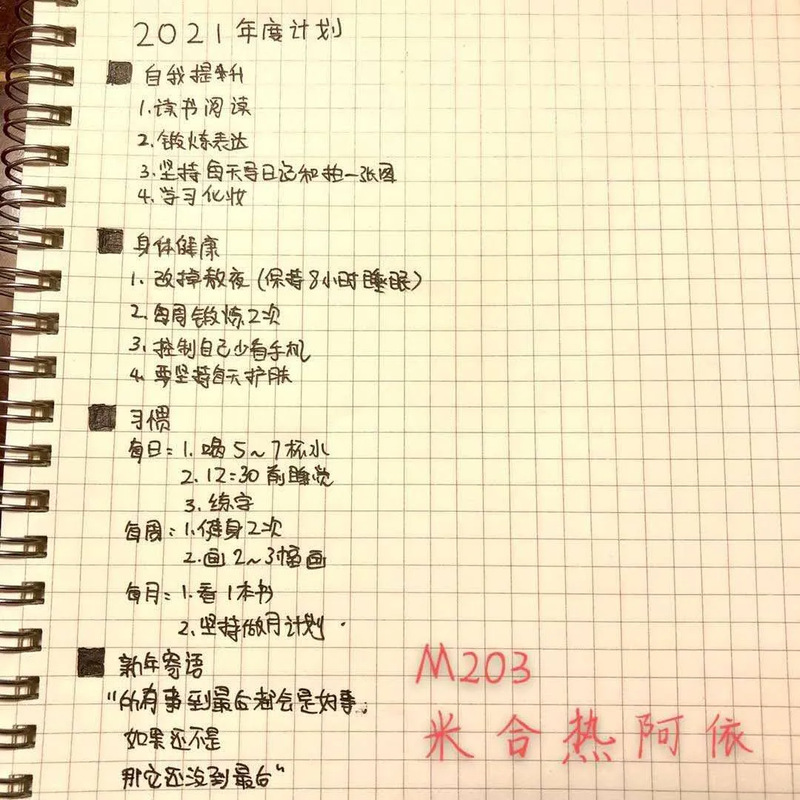 2021年度计划
■ 自我提升
1.读书阅读
2.锻炼表达
3.坚持每天写日记和拍一张图
4.学习化妆
■ 身体健康
1.改掉熬夜(保持8小时睡眠)
2.每周锻炼2次
3.控制自己少看手机
4.要坚持每天护肤
■ 习惯
每日:1.喝5~7杯水
2.12:30前睡觉
3.练字
每周:1.健身2次
2.画2~3幅画
每月:1.看1本书
2.坚持做月计划.
■ 新年寄语
"所有事到最后都会是好事。
如果还不是
那它还没到最后"
M203
米合热阿依